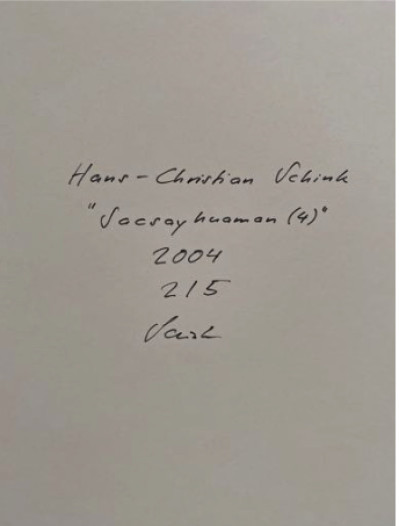 Hans-Christian Schink
"Sacsayhuaman (4)"
2004
2/5
Schink